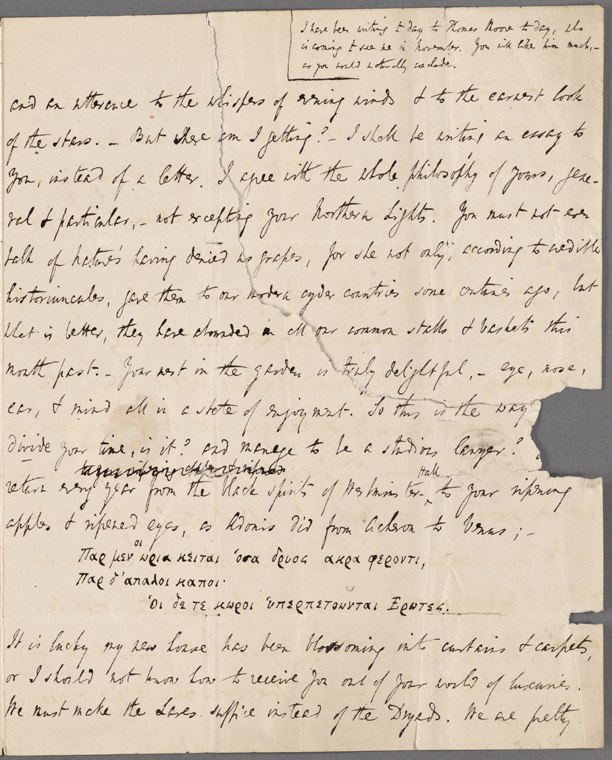 I have been writing to day to Thomas Moore to day, who
is coming to see me in November. You will like him much,—
as you would naturally conclude.
and an utterance to the whispers of evening winds & to the earnest look
of the stars. — But where am I getting? — I shall be writing an essay to
you, instead of a letter. I agree with the whole philosophy of yours, gene-
ral & particular, — not excepting your Northern Lights. You must not even
talk of Nature's having denied us grapes, for she not only, according to credible
historiuncules, gave them to our modern cyder countries some centuries ago, but
what is better, they have abounded in all our common stalls & baskets this
month past. — Your nest in the garden is truly delightful, — eye, nose,
ear, & mind all in a state of enjoyment. So this is the way
divide your time, is it? and manage to be a studious lawyer?
return every year from the black spirits of Westminster Hall to your ripening
apples & ripened eyes, as Adonis did from Acheron to Venus; —
Παρ μεν οἱ ὡρια κειται ὁσα δρυος ακρα φεροντι,
Παρ δ'απαλοι καποι·
Ὁι δε τε κωροι ὑπερπετωνται Ερωτες.
It is lucky my new house has been blossoming into curtains & carpets,
or I should not know how to receive you out of your world of luxuries.
We must make the Lares suffice instead of the Dryads. We are pretty